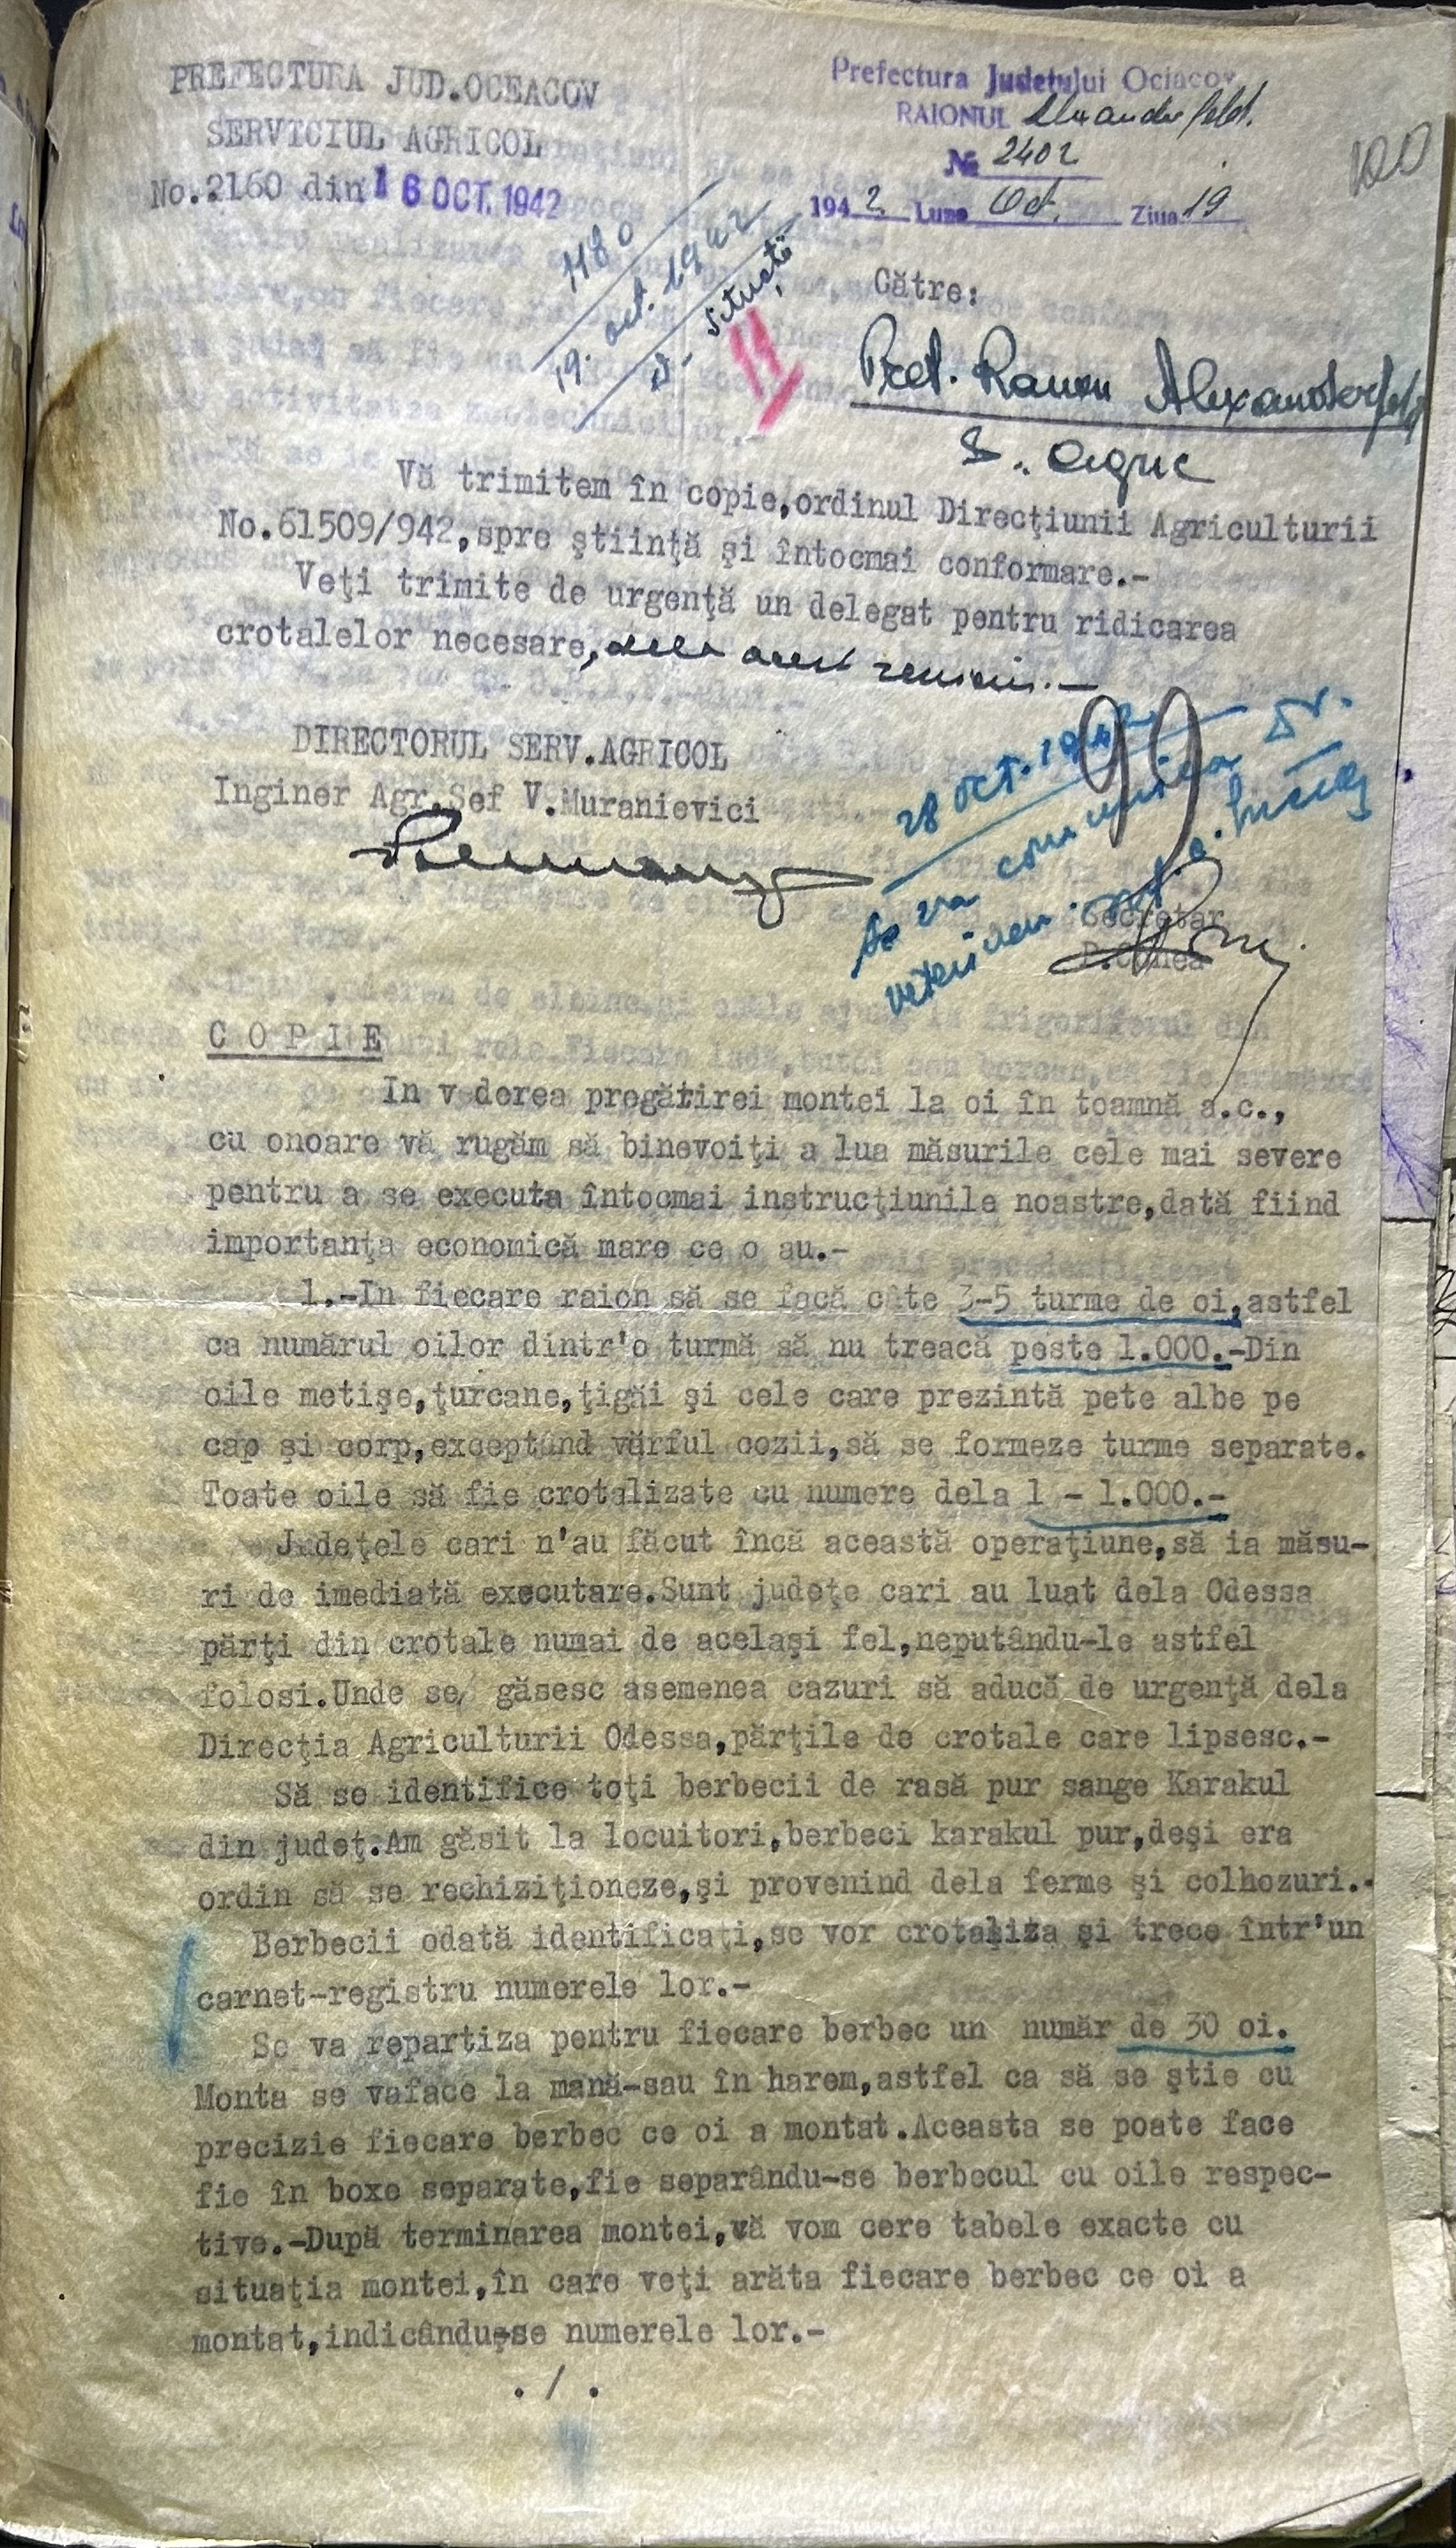 PREFECTURA JUD.OCEACOV
SERVICIUL AGRICOL
No.2160 din 16 OCT. 1942
Prefectura Județului Ociacov
RAIONUL Alexanderfeld.
№ 2402
1942 Luna Oct. Ziua 19
100
1180
19. oct. 1942
situație
Către:
Pret. Raion Alexanderfeld
S. agric
Vă trimitem în copie,ordinul Direcţiunii Agriculturii
No.61509/942,spre ştiinţă şi întocmai conformare.-
Veţi trimite de urgenţă un delegat pentru ridicarea
crotalelor necesare, dela acest serviciu.-
DIRECTORUL SERV.AGRICOL
Inginer Agr.Şef V.Muranievici
99
28 OCT. 1942
Se va comunica Dr.
veterinar
Secretar
C O P I E
In v derea pregătirei montei la oi în toamnă a.c.,
cu onoare vă rugăm să binevoiţi a lua măsurile cele mai severe
pentru a se executa întocmai instrucţiunile noastre,dată fiind
importanţa economică mare ce o au.-
1.-In fiecare raion să se facă câte 3-5 turme de oi,astfel
ca numărul oilor dintr'o turmă să nu treacă peste 1.000.-Din
oile metişe,ţurcane,ţigăi şi cele care prezintă pete albe pe
cap şi corp,exceptând vârful cozii,să se formeze turme separate.
Toate oile să fie crotalizate cu numere dela 1 - 1.000.-
Judeţele cari n'au făcut încă această operaţiune,să ia măsu-
ri de imediată executare.Sunt judeţe cari au luat dela Odessa
părţi din crotale numai de acelaşi fel,neputându-le astfel
folosi.Unde se/ găsesc asemenea cazuri să aducă de urgenţă dela
Direcţia Agriculturii Odessa,părţile de crotale care lipsesc.-
Să se identifice toţi berbecii de rasă pur sange Karakul
din judeţ.Am găsit la locuitori,berbeci karakul pur,deşi era
ordin să se rechiziţioneze,şi provenind dela ferme şi colhozuri.-
Berbecii odată identificaţi,se vor crotaliza şi trece într'un
carnet-registru numerele lor.-
Se va repartiza pentru fiecare berbec un număr de 30 oi.
Monta se vaface la mană-sau în harem,astfel ca să se ştie cu
precizie fiecare berbec ce oi a montat.Aceasta se poate face
fie în boxe separate,fie separându-se berbecul cu oile respec-
tive.-După terminarea montei,vă vom cere tabele exacte cu
situaţia montei,în care veţi arăta fiecare berbec ce oi a
montat,indicându-se numerele lor.-
./.